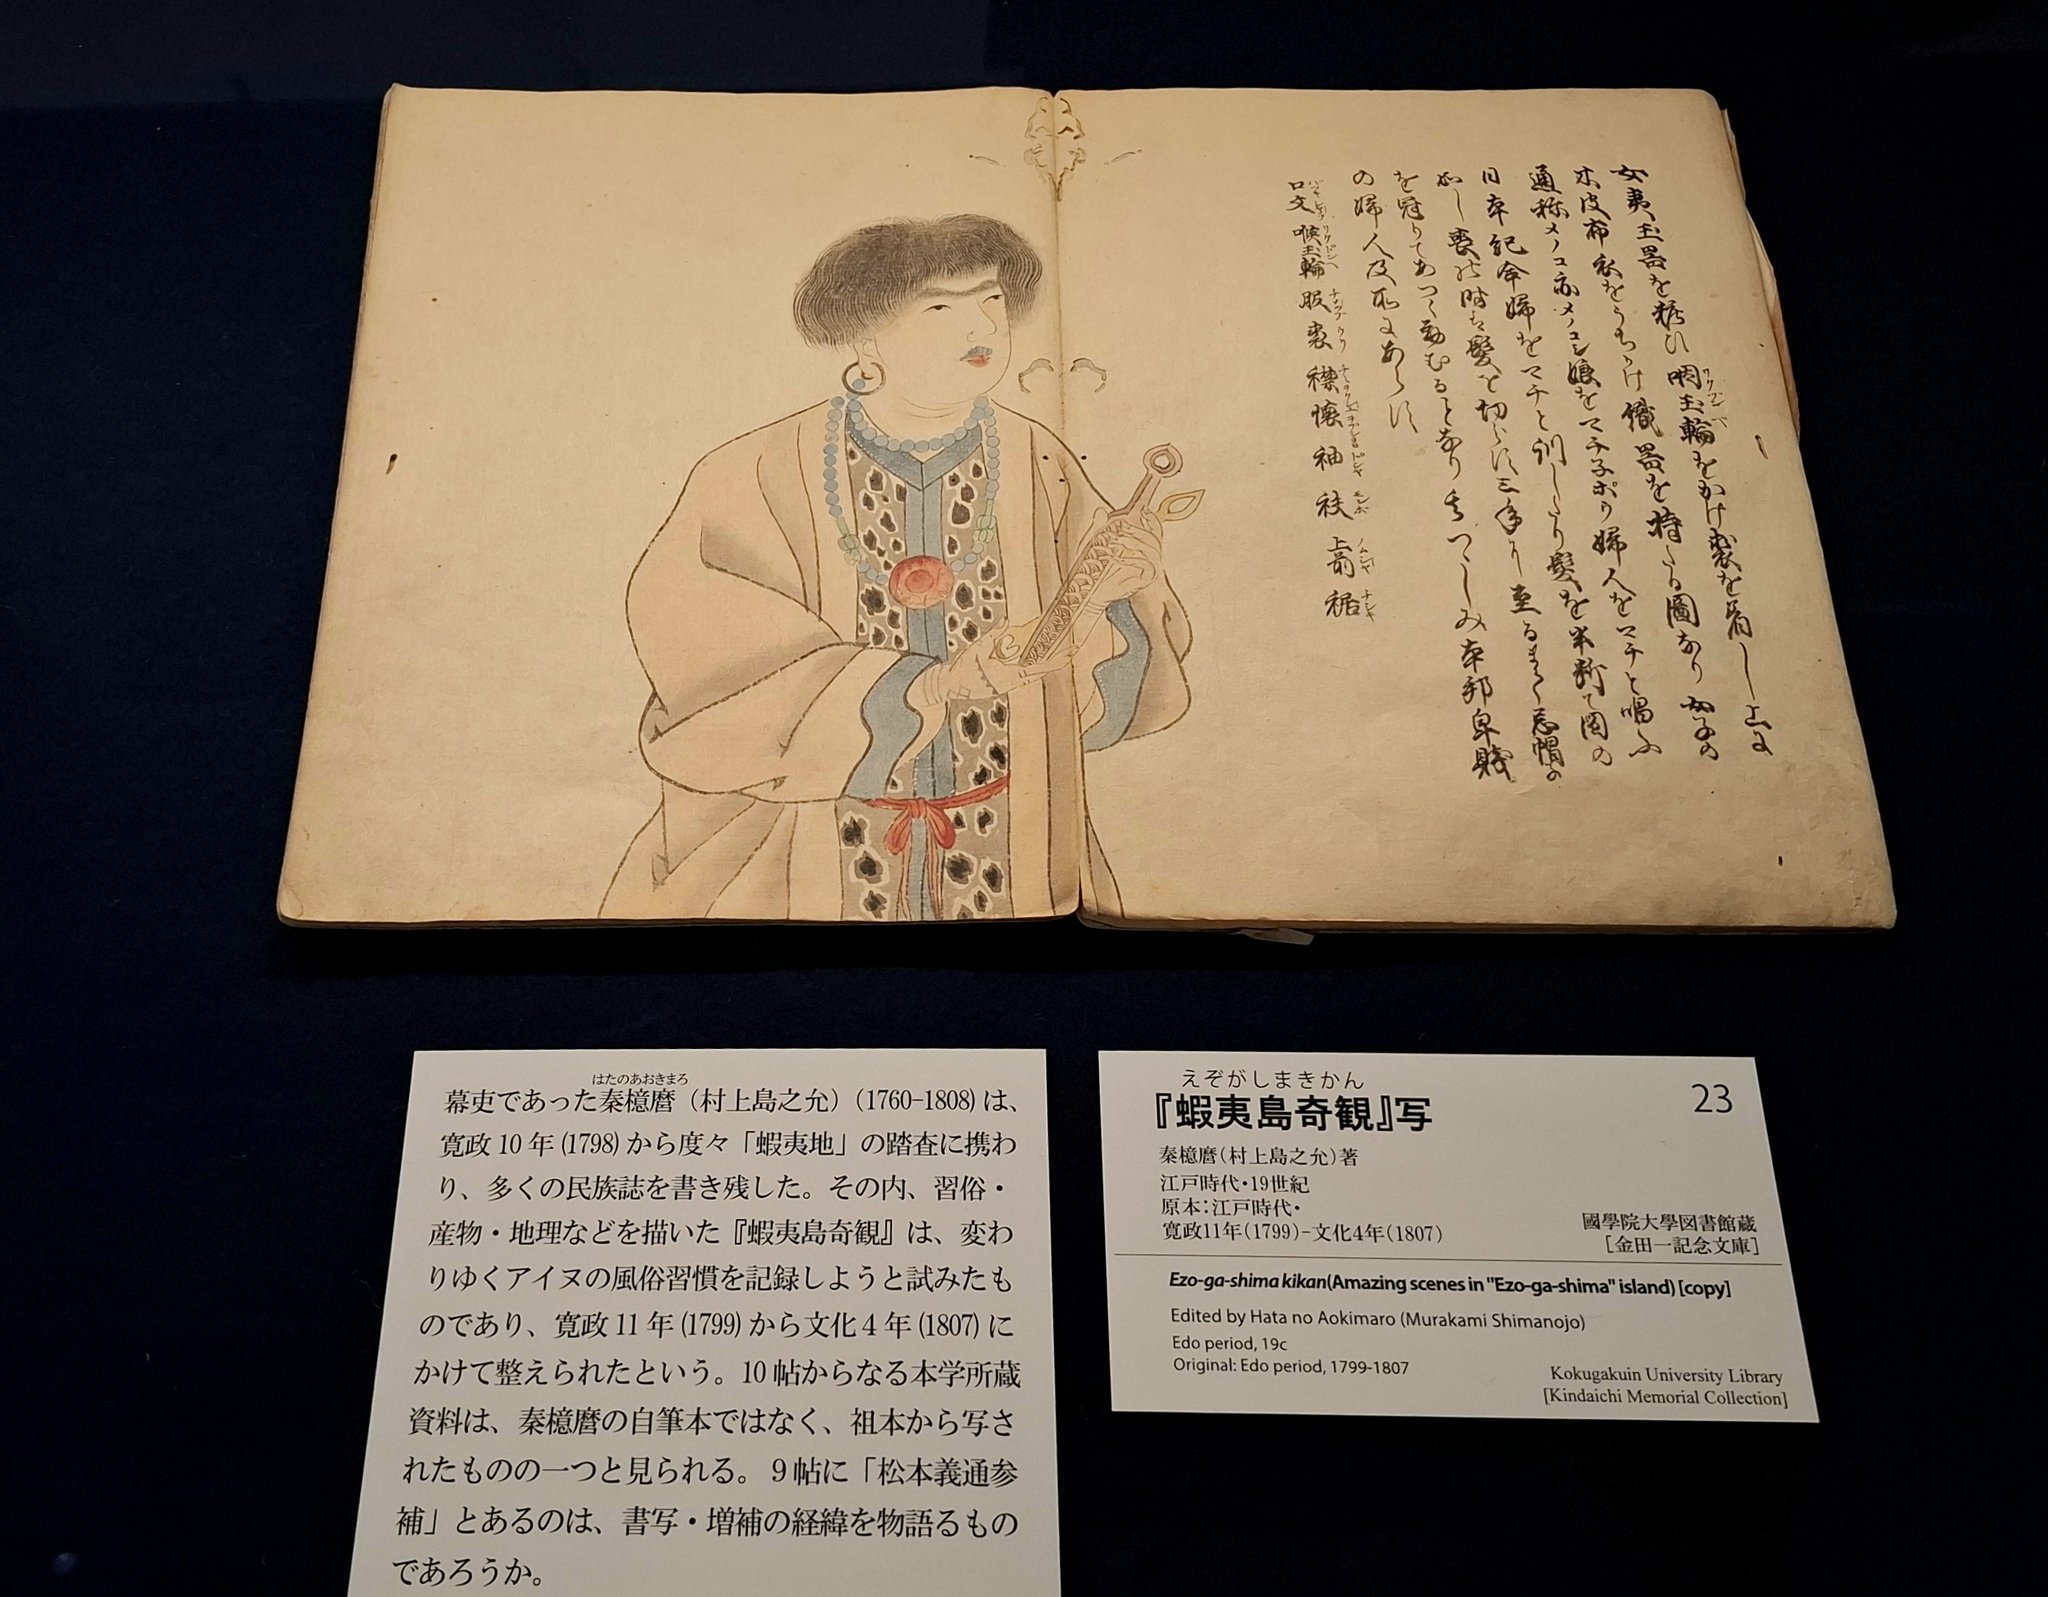 女夷玉器を粧ひ咽玉輪をかけ裘を着し上に
木皮布衣をうちかけ織器を持たる圖なり女子の
通称メノコ亦メノコシ娘をマチ子ポリ婦人をマチと唱ふ
日本紀命婦をマチと訓したり髪を半断て図の
如し喪の時は髪を切らす三年に至るまて忌帽の
を冠りて
の婦人及
口文
喉玉輪
服裘
襟
懐
袖
袂
上前
裾
はたのあおきまろ
幕吏であった秦檍麿（村上島之允）(1760-1808)は、
寛政10年(1798)から度々「蝦夷地」の踏査に携わ
り、多くの民族誌を書き残した。その内、習俗・
産物・地理などを描いた『蝦夷島奇観』は、変わ
りゆくアイヌの風俗習慣を記録しようと試みたも
のであり、寛政11年(1799)から文化4年(1807)に
かけて整えられたという。10帖からなる本学所蔵
資料は、秦檍麿の自筆本ではなく、祖本から写さ
れたものの一つと見られる。9帖に「松本義通参
補」とあるのは、書写・増補の経緯を物語るもの
であろうか。
えぞがしまきかん
『蝦夷島奇観』写
23
秦檍麿(村上島之允)著
江戸時代・19世紀
原本：江戸時代・
寛政11年(1799)-文化4年(1807)
國學院大學図書館蔵
［金田一記念文庫］
Ezo-ga-shima kikan(Amazing scenes in "Ezo-ga-shima" island) [copy]
Edited by Hata no Aokimaro (Murakami Shimanojo)
Edo period, 19c
Original: Edo period, 1799-1807
Kokugakuin University Library
[Kindaichi Memorial Collection]